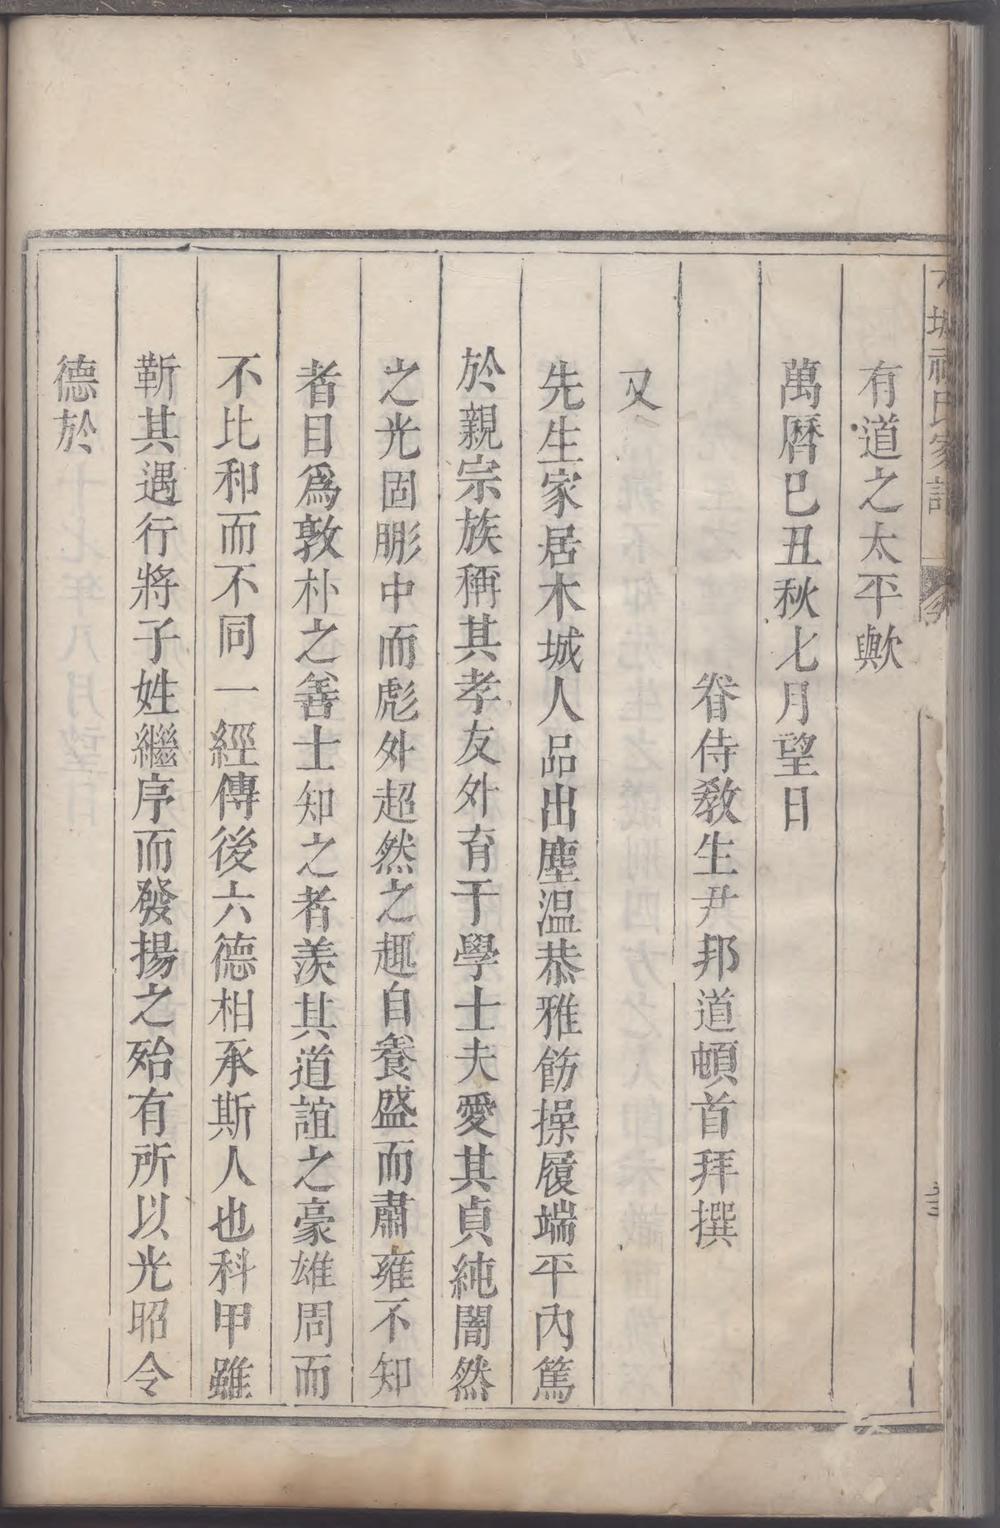 木城祁氏家譜
有道之太平歟
萬曆己丑秋七月望日
眷侍敎生尹邦道頓首拜撰
又
先生家居木城人品出塵溫恭雅飭操履端平內篤
於親宗族稱其孝友外育于學士夫愛其貞純闇然
之光固彪中而彪外超然之趣自養盛而肅雍不知
者目爲敦朴之善士知之者羨其道誼之豪雄周而
不比和而不同一經傳後六德相承斯人也科甲雖
靳其遇行將子姓繼序而發揚之殆有所以光昭令
德於